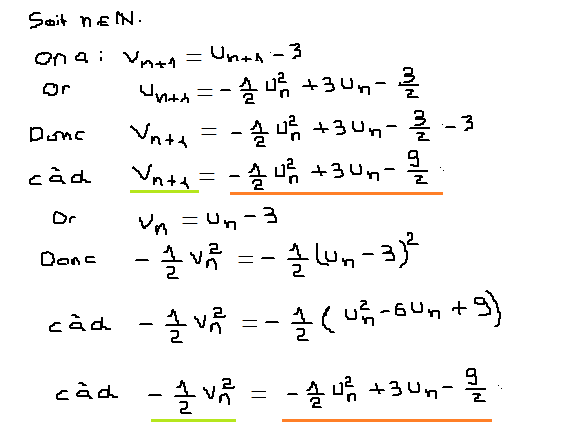 Soit n ∈ ℕ.
On a : Vₙ₊₁ = Uₙ₊₁ - 3
Or Uₙ₊₁ = - 1/2 Uₙ² + 3Uₙ - 3/2
Donc Vₙ₊₁ = - 1/2 Uₙ² + 3Uₙ - 3/2 - 3
càd Vₙ₊₁ = - 1/2 Uₙ² + 3Uₙ - 9/2
Or Vₙ = Uₙ - 3
Donc - 1/2 Vₙ² = - 1/2 (Uₙ - 3)²
càd - 1/2 Vₙ² = - 1/2 ( Uₙ² - 6Uₙ + 9)
càd - 1/2 Vₙ² = - 1/2 Uₙ² + 3Uₙ - 9/2 .